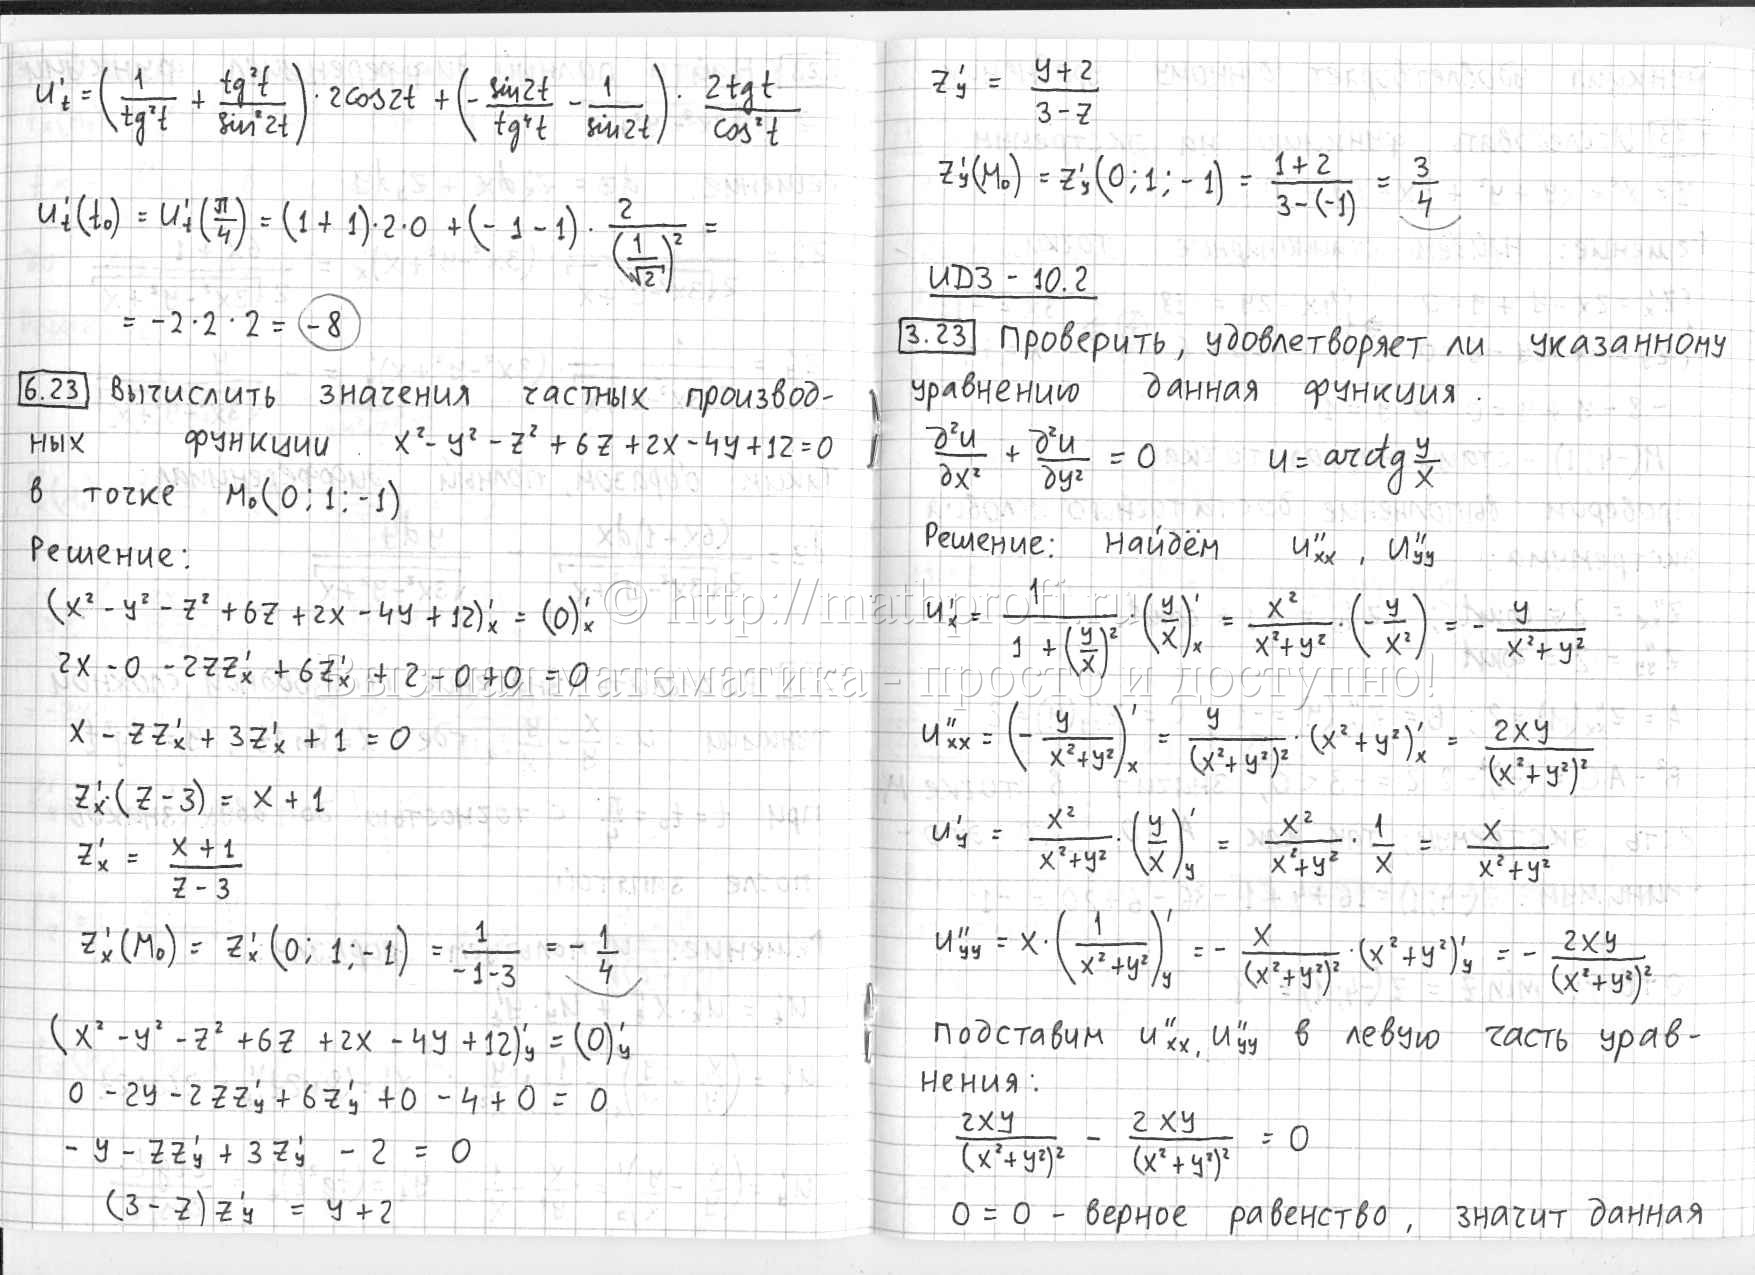 u't = (1/tg²t + tg²t/sin²2t) · 2cos2t + (- sin2t/tg⁴t - 1/sin2t) · 2tgt/cos²t
u't(t₀) = u't(π/4) = (1+1)·2·0 + (-1-1) · 2/(1/√2)² =
= -2·2·2 = -8
6.23 Вычислить значения частных производ-
ных функции x²-y²-z²+6z+2x-4y+12=0
в точке M₀(0;1;-1)
Решение:
(x²-y²-z²+6z+2x-4y+12)'x = (0)'x
2x-0-2zz'x+6z'x+2-0+0=0
x-zz'x+3z'x+1=0
z'x·(z-3)=x+1
z'x = (x+1)/(z-3)
z'x(M₀) = z'x(0;1;-1) = 1/(-1-3) = -1/4
(x²-y²-z²+6z+2x-4y+12)'y = (0)'y
0-2y-2zz'y+6z'y+0-4+0=0
-y-zz'y+3z'y-2=0
(3-z)z'y = y+2
z'y = (y+2)/(3-z)
z'y(M₀) = z'y(0;1;-1) = (1+2)/(3-(-1)) = 3/4
ИДЗ - 10.2
3.23 Проверить, удовлетворяет ли указанному
уравнению данная функция.
∂²u/∂x² + ∂²u/∂y² = 0 u = arctg y/x
Решение: Найдём u''xx, u''yy
u'x = 1/(1+(y/x)²) · (y/x)'x = x²/(x²+y²) · (-y/x²) = - y/(x²+y²)
© http://mathprofi.ru
Высшая математика - просто и доступно!
u''xx = (- y/(x²+y²))'x = y/(x²+y²)² · (x²+y²)'x = 2xy/(x²+y²)²
u'y = x²/(x²+y²) · (y/x)'y = x²/(x²+y²) · 1/x = x/(x²+y²)
u''yy = x·(1/(x²+y²))'y = - x/(x²+y²)² · (x²+y²)'y = - 2xy/(x²+y²)²
Подставим u''xx, u''yy в левую часть урав-
нения:
2xy/(x²+y²)² - 2xy/(x²+y²)² = 0
0=0 - верное равенство, значит данная